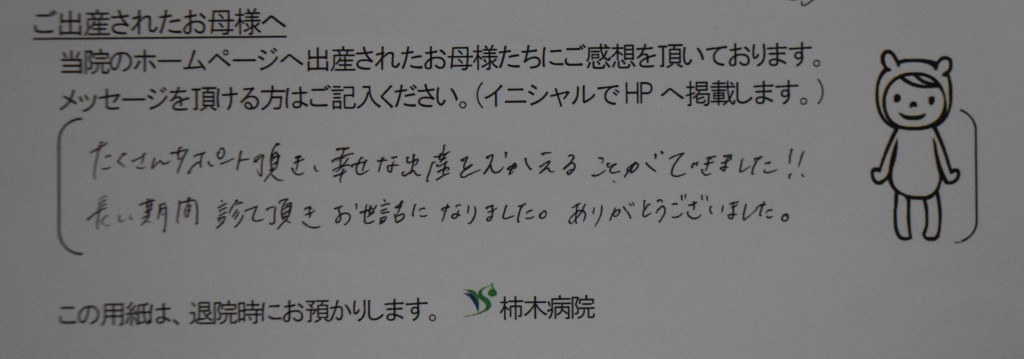 ご出産されたお母様へ
当院のホームページへ出産されたお母様たちにご感想を頂いております。
メッセージを頂ける方はご記入ください。（イニシャルでHPへ掲載します。）
たくさんサポート頂き、幸せな出産をむかえることができました!!
長い期間 診て頂き お世話に なりました。ありがとうございました。
この用紙は、退院時にお預かりします。 柿木病院